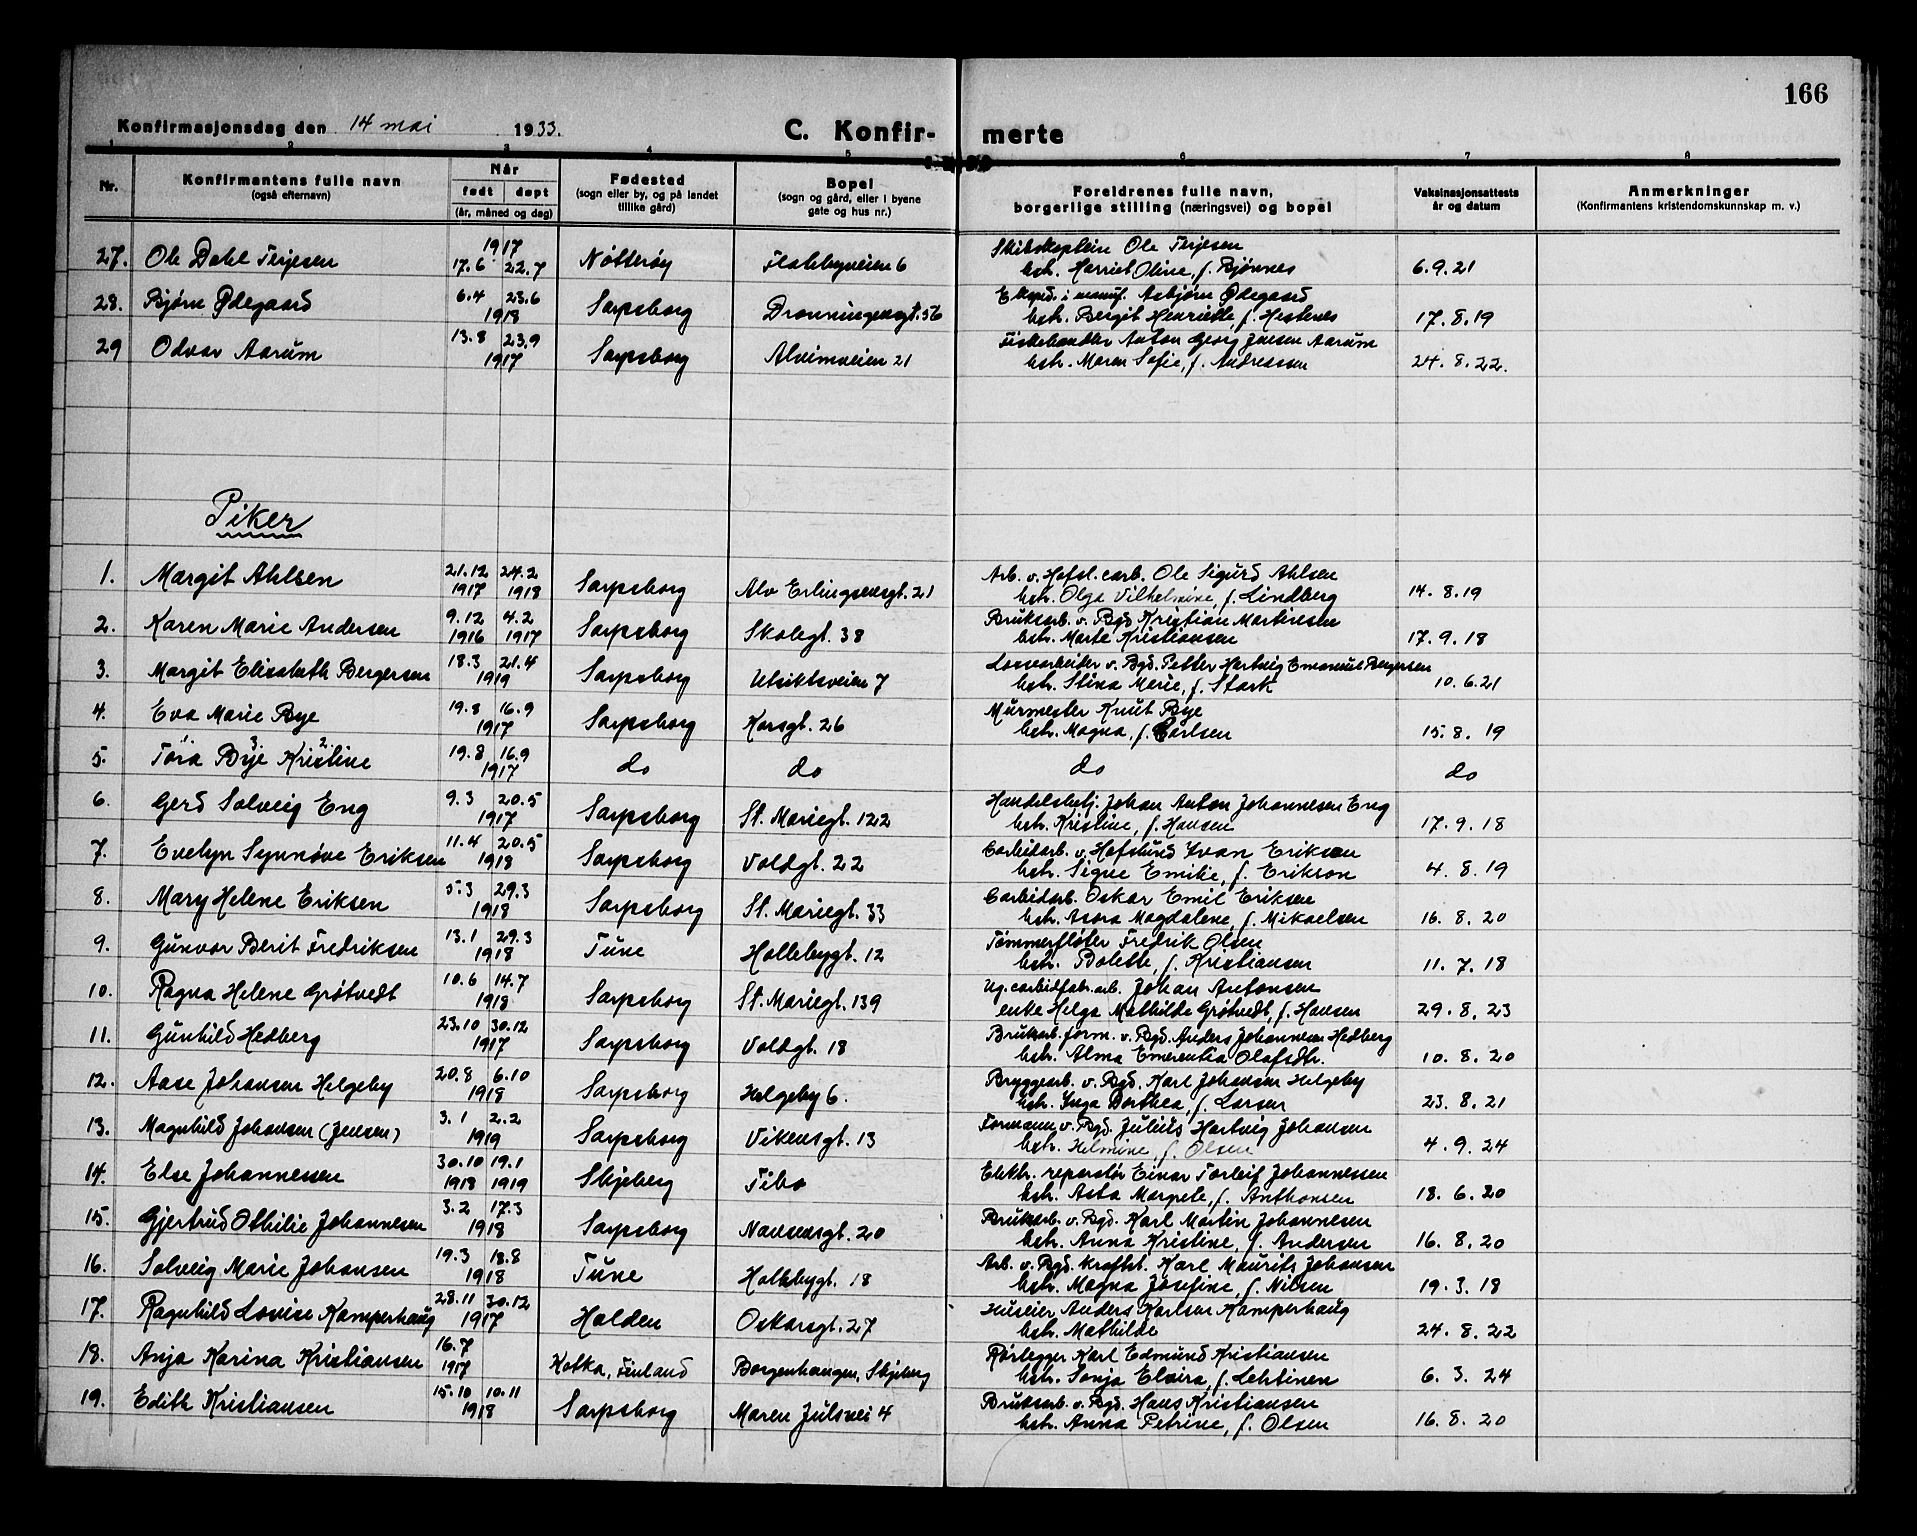 166
Konfirmasjonsdag den 14 mai 1933. C. Konfir- merte
1 2 3 4 5 6 7 8
Nr. Konfirmantens fulle navn (også efternavn) Når født døpt (år, måned og dag) Fødested (sogn eller by, og på landet tillike gård) Bopel (sogn og gård, eller i byene gate og hus nr.) Foreldrenes fulle navn, borgerlige stilling (næringsvei) og bopel Vaksinasjonsattests år og datum Anmerkninger (Konfirmantens kristendomskunnskap m. v.)
27. Ole Dahl Terjesen 1917 17.6 22.7 Nøtterøy 6 Skibskaptein Ole Terjesen
hstr. Harriet Oline, f. Bjønnes 6.9.21
28. Bjørn Ødegaard 6.4 23.6 1918 Sarpsborg Dronningensgt. 56 Eksped. i manuf. Asbjørn Ødegaard
hstr. Bergit Henriette, f. Hestenes 17.8.19
29 Odvar Aarum 13.8 23.9 1917 Sarpsborg Alvimveien 21 Fiskehandler Anton Georg Jensen Aarum
hstr. Maren Sofie, f. Andreassen 24.8.22.
Piker
1. Margit Ahlsen 21.12 1917 24.2 1918 Sarpsborg Alv Erlingsensgt. 21 Arb. v. Hafsl. carb. Ole Sigurd Ahlsen
hstr. Olga Vilhelmine, f. Lindberg 14.8.19
2. Karen Marie Andersen 9.12 1916 4.2 1917 Sarpsborg Skolegt. 38 Bruksarb. v. Bgd Kristian Martinsen
hstr. Marte Kristiansen 17.9.18
3. Margit Elisabeth Bergersen 18.3 21.4 1919 Sarpsborg Utsiktsveien 7 Lossearbeider v. Bgd. Petter Hartvig Emanuel Bergersen
hstr. Stina Marie, f. Stark 10.6.21
4. Eva Marie Bye 19.8 16.9 1917 Sarpsborg Korsgt. 26 Murmester Knut Bye
hstr. Magna, f. Carlsen 15.8.19
5. Tora Bye Kristine 19.8 16.9 1917 do do do do
6. Gerd Solveig Eng 9.3 20.5 1917 Sarpsborg St. Mariegt. 122 Handelsbetj. Johan Anton Johannesen Eng
hstr. Kristine, f. Hansen 17.9.18
7. Evelyn Synnøve Eriksen 11.4 20.5 1918 Sarpsborg Voldgt. 22 Carbidarb. v. Hafslund Ivan Eriksen
hstr. Signe Emilie, f. Erikson 4.8.19
8. Mary Helene Eriksen 5.3 29.3 1918 Sarpsborg St. Mariegt. 33 Carbidarb. Oskar Emil Eriksen
hstr. Asora Magdalene, f. Mikaelsen 16.8.20
9. Gunvor Berit Fredriksen 13.1 29.3 1918 Tune Hollebygt. 12 Tømmerfløter Fredrik Olsen
hstr. Bolette, f. Kristiansen 11.7.18
10. Ragna Helene Grøtvedt 10.6 14.7 1918 Sarpsborg St. Mariegt. 139 Ug. carbidfabr.arb. Johan Antonsen
enke Helga Mathilde Grøtvedt, f. Hansen 29.8.23
11. Gunhild Hedberg 23.10 30.12 1917 Sarpsborg Voldgt. 18 Bruksarb. form. v. Bgd. Anders Johannesen Hedberg
hstr. Alma Emerentia Olafsdtr. 10.8.20
12. Aase Johansen Helgeby 20.8 6.10 1918 Sarpsborg Helgeby 6. Bryggearb. v. Bgd. Karl Johansen Helgeby
hstr. Inga Dorthea, f. Larsen 23.8.21
13. Magnhild Johansen (Jensen) 3.1 2.2 1919 Sarpsborg Vikensgt. 13 Formann v. Bgd. Julius Hartvig Johansen
hstr. Helmine, f. Olsen 4.9.24
14. Else Johannessen 30.10 1918 19.1 1919 Skjeberg Tibo Elektr. reparatør Einar Torleif Johannessen
hstr. Asta Margrete, f. Anthonsen 18.6.20
15. Gjertrud Othilie Johannesen 3.2 17.3 1918 Sarpsborg Nansensgt. 20 Bruksarb. v. Bgd. Karl Martin Johannesen
hstr. Anna Kristine, f. Andersen 16.8.20
16. Solveig Marie Johansen 19.3 18.8 1918 Tune Hollebygt. 18 Arb. v. Bgd. kraftst. Karl Maurits Johansen
hstr. Magna Josefine, f. Nilsen 19.3.18
17. Ragnhild Lovise Kamperhaug 28.11 30.12 1917 Halden Oskarsgt. 27 Huseier Anders Karlsen Kamperhaug
hstr. Mathilde 24.8.22
18. Anja Karina Kristiansen 16.7 1917 Kotka, Finland Borgenhaugen, Skjeberg Rørlegger Karl Edmund Kristiansen
hstr. Sonja Elvira, f. Lehtinen 6.3.24
19. Edith Kristiansen 15.10 10.11 1918 Sarpsborg Maren Julsvei 4 Bruksarb. v. Bgd. Hans Kristiansen
hstr. Anna Petrine, f. Olsen 16.8.20